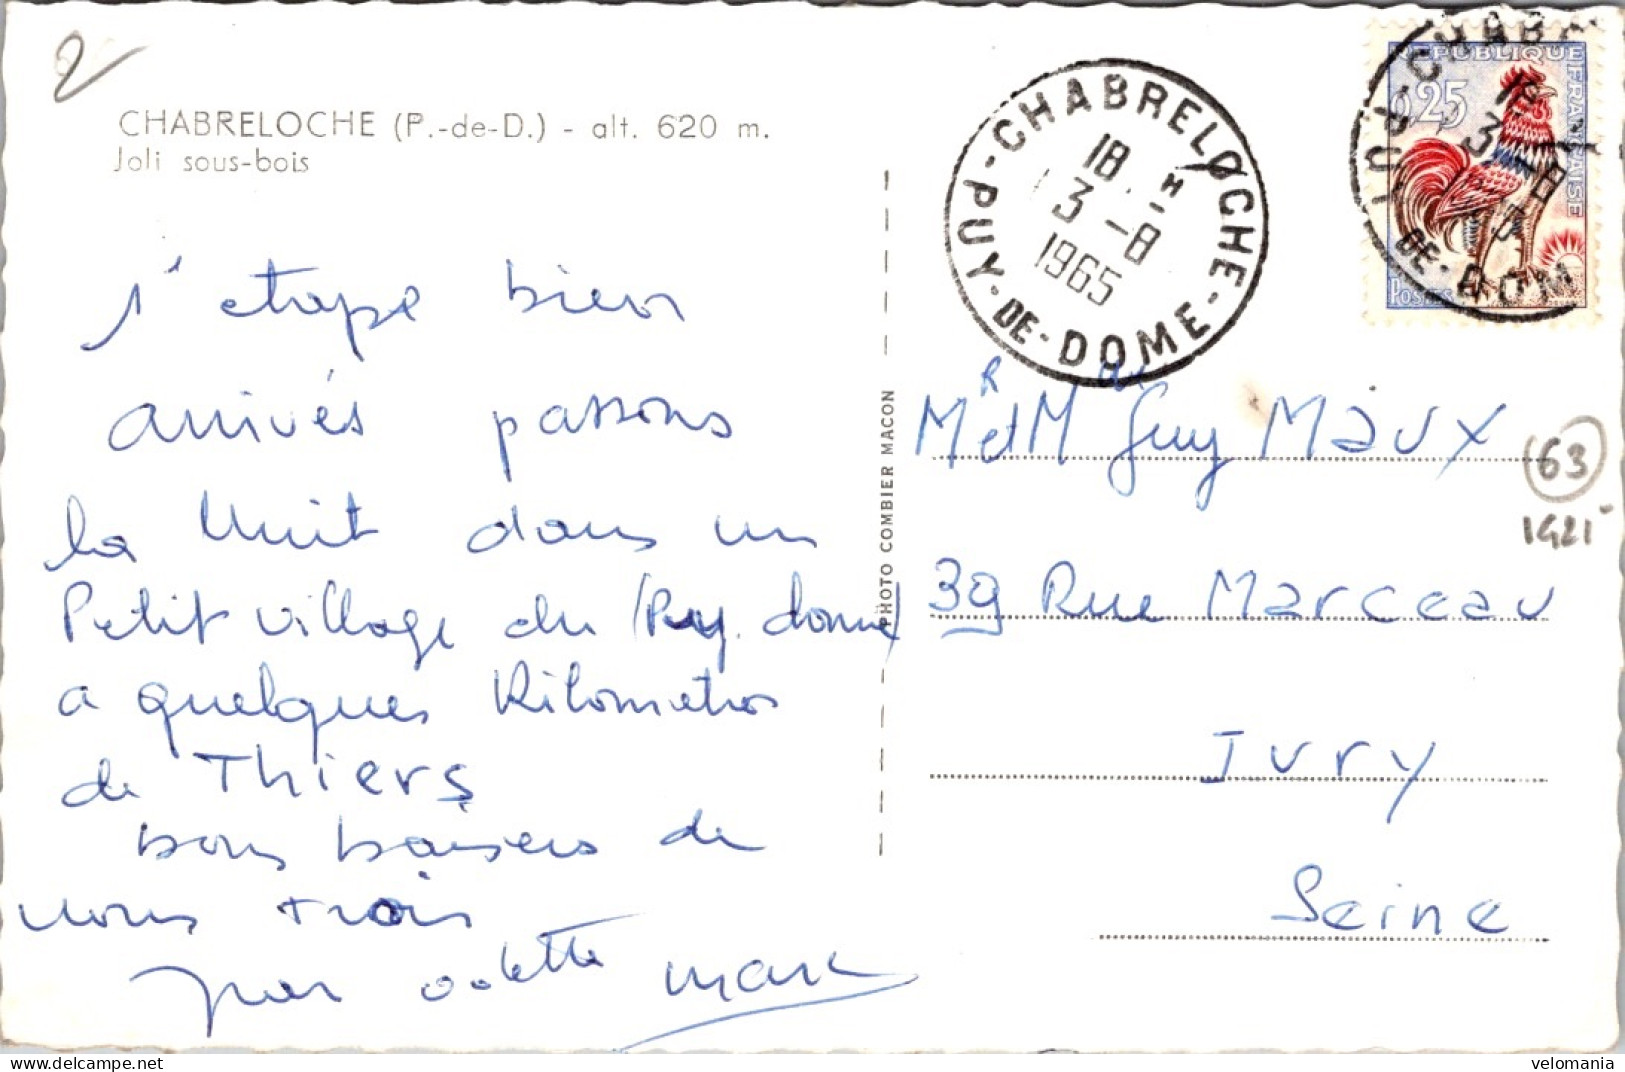 2
CHABRELOCHE (P.-de-D.) - alt. 620 m.
Joli sous-bois
1' etape bien
arrivés passons
la Nuit dans un
Petit village du (Puy. dome)
a quelques Kilometres
de Thiers
bons baisers de
nous trois
odette marc
PHOTO COMBIER MACON
CHABRELOCHE
18 H
3 - 8
1965
PUY-DE-DOME
REPUBLIQUE FRANÇAISE
0,25
Postes
CHABR
18
3 - 8
PUY-DE-DOM
Mr et Mme Guy Maux
39 Rue Marceau
Ivry
Seine
63
1421
velomania